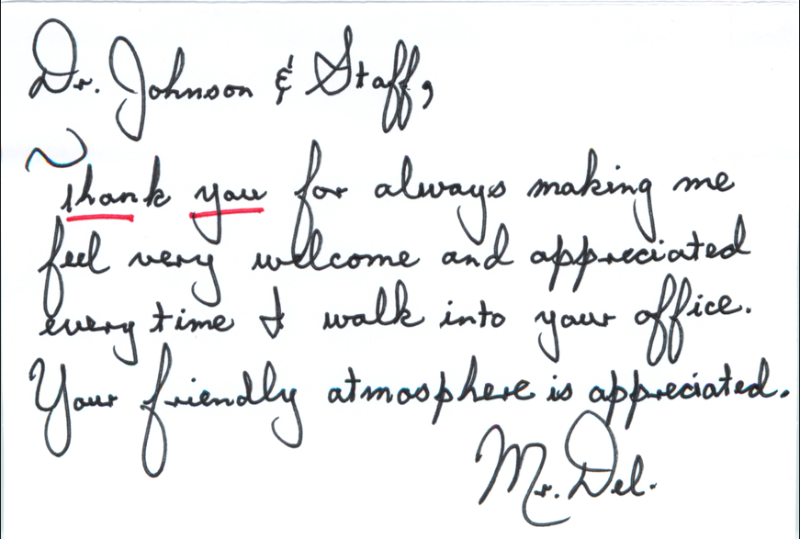 Dr. Johnson & Staff,
Thank you for always making me
feel very welcome and appreciated
every time I walk into your office.
Your friendly atmosphere is appreciated.
Mr. Del.